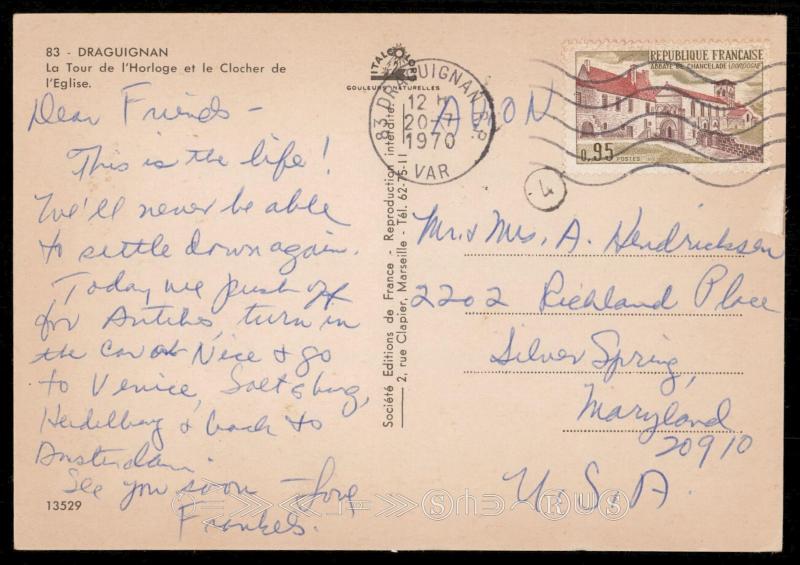 83 - DRAGUIGNAN
La Tour de l'Horloge et le Clocher de
l'Eglise.
ITALCOLORS
COULEURS NATURELLES
Dear Friends -
This is the life!
We'll never be able
to settle down again.
Today we push off
for Antibes, turn in
the car at Nice & go
to Venice, Saltsburg,
Heidelberg & back to
Amsterdam.
See you soon - Love
Frankels.
13529
Société Editions de France - Reproduction interdite.
2, rue Clapier, Marseille - Tél. 62-75-11
83 DRAGUIGNAN P.P.
12 H
20-7
1970
VAR
AVION
REPUBLIQUE FRANÇAISE
ABBAYE DE CHANCELADE (DORDOGNE)
0,95
POSTES
4
Mr & Mrs. A. Hendricksen
2202 Richland Place
Silver Spring,
Maryland
20910
U.S.A.